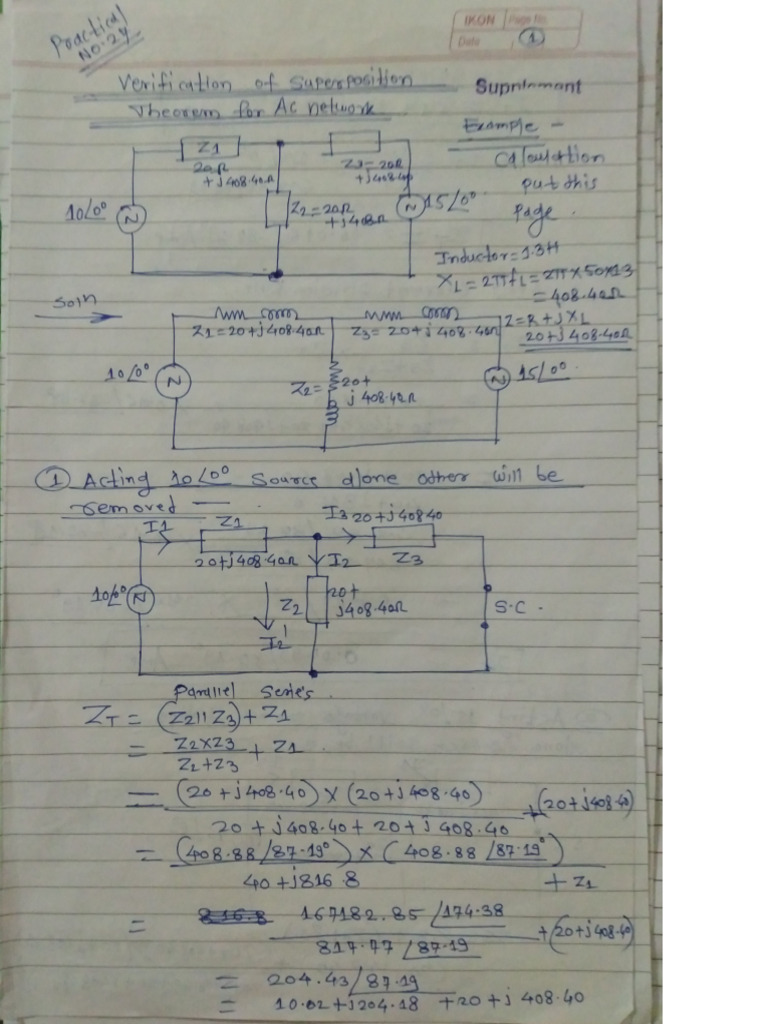 Practical
NO.24
IKON Page No.
Date 1
Verification of Superposition
Theorem for Ac network
Supplement
Example -
Calculation
put this
page.
Z1
20Ω
+j408.40Ω
Z3=20Ω
+j408.40
10∠0°
Z2=20Ω
+j408Ω
15∠0°
Inductor=1.3H
XL=2πfL=2π×50×1.3
=408.40Ω
Z=R+jXL
20+j408.40Ω
Soln
Z1=20+j408.40Ω
Z3=20+j408.40Ω
10∠0°
Z2=20+
j408.4Ω
15∠0°
① Acting 10∠0° Source alone other will be
removed —
I1 Z1 I3 20+j40840
20+j408.40Ω I2 Z3
10∠0°
Z2 20+
j408.40Ω
S.C.
I2'
Parallel Series.
ZT = (Z2||Z3)+Z1
= Z2×Z3/Z2+Z3 + Z1
= (20+j408.40)×(20+j408.40)/20+j408.40+20+j408.40 +(20+j408.40)
= (408.88∠87.19°)×(408.88∠87.19°)/40+j816.8 +Z1
= 167182.85∠174.38/817.77∠87.19 +(20+j408.40)
= 204.43∠87.19
= 10.02+j204.18 +20+j408.40